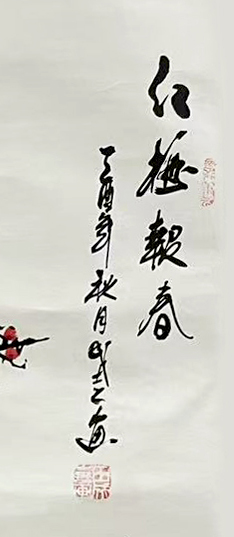 红梅報春
丁酉年秋月
画